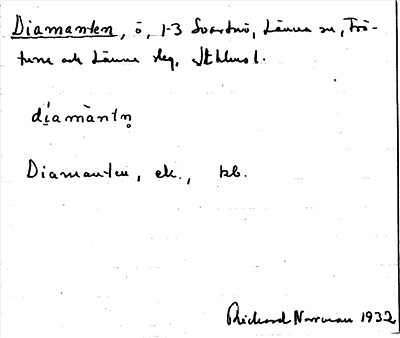 Diamanten, ö, 1-3 Svartnö, Länna sn, Frö-
tuna och Länna skg, Sthlms l.
dí̯amàntn̥
Diamanten, ek., kb.
Richard Norrman 1932